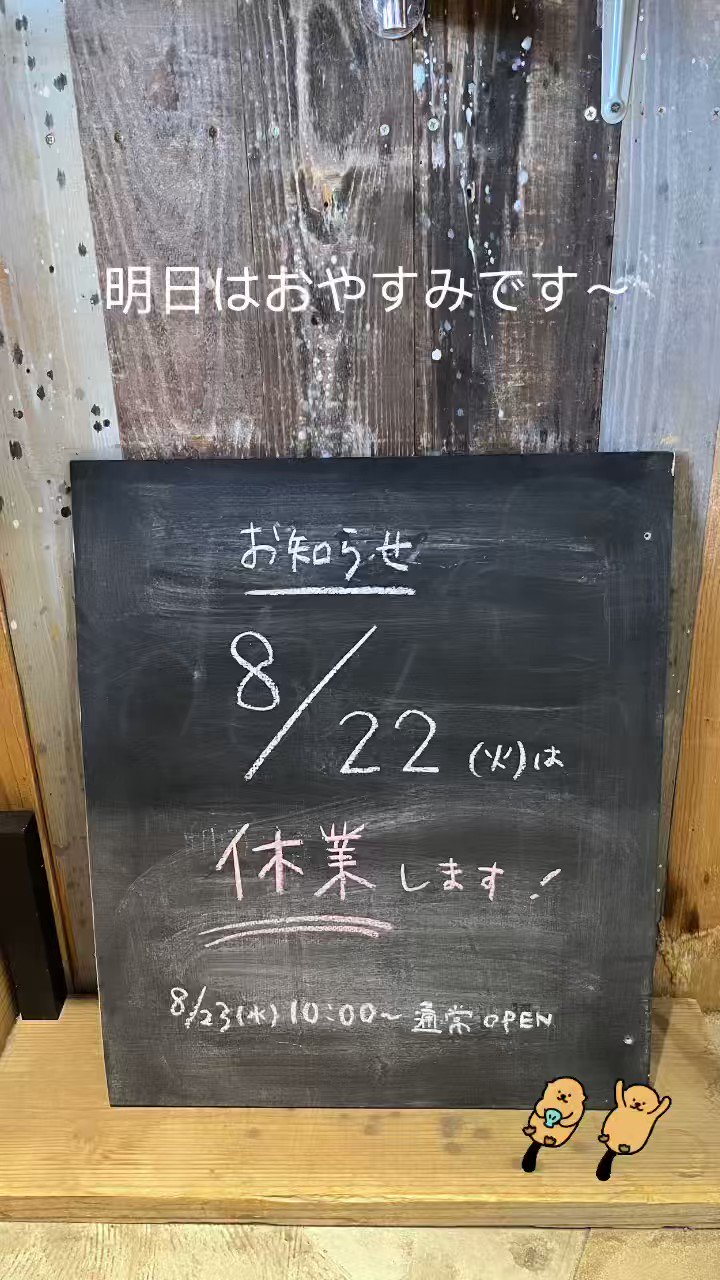 明日はおやすみです～
お知らせ
8/22(火)は
休業します!
8/23(水)10:00~通常OPEN